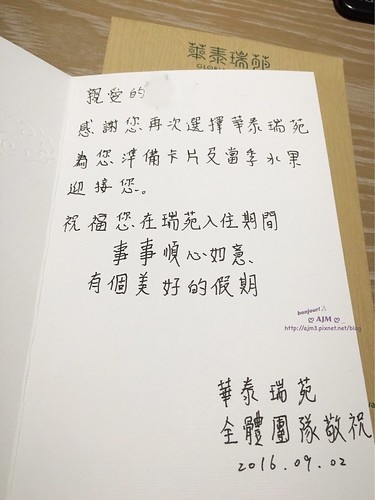 華泰瑞苑
親愛的
感謝您再次選擇華泰瑞苑
為您準備卡片及當季水果
迎接您。
祝福您在瑞苑入住期間
事事順心如意、
有個美好的假期
bonjour!
AJM
http://ajm3.pixnet.net/blog
華泰瑞苑
全體團隊敬祝
2016.09.02